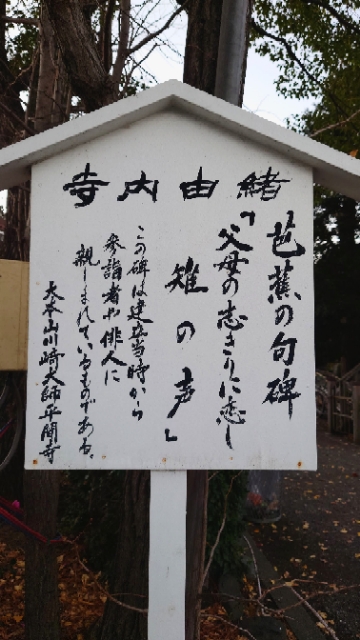 寺内由緒
芭蕉の句碑
「父母の志きりに恋し
雉の声」
この碑は建立当時から
参詣者や俳人に
親しまれているものである。
大本山川崎大師平間寺